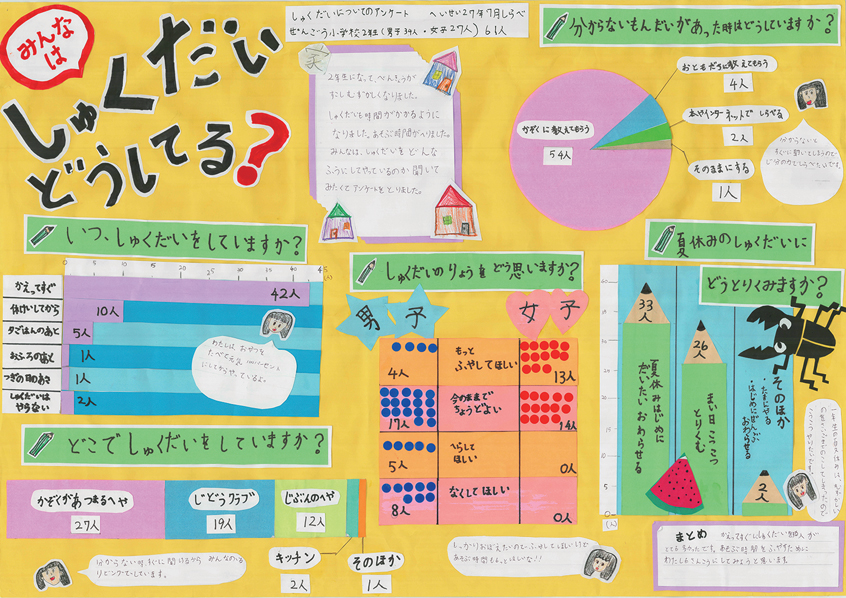 みんなは
しゅくだい
どうしてる?
しゅくだいについてのアンケート へいせい27年7月しらべ
2年生(男子34人・女子27人)61人
家
2年生になって、べんきょうが
すこしむずかしくなりました。
しゅくだいも時間がかかるように
なりました。あそぶ時間がへりました。
みんなは、しゅくだいをどんな
ふうにしてやっているのか聞いて
みたくてアンケートをとりました。
分からないもんだいがあった時はどうしていますか?
おともだちに教えてもらう
4人
本やインターネットでしらべる
2人
そのままにする
1人
かぞくに教えてもらう
54人
分からないと
すぐに聞いてしまうので
じ分の力でしらべたいです。
いつ、しゅくだいをしていますか?
0 5 10 15 20 25 30 35 40 45
(人)
かえってすぐ
42人
休けいしてから
10人
夕ごはんのあと
5人
おふろのあと
1人
つぎの日のあさ
1人
しゅくだいは
やらない
2人
わたしは、おやつを
たべて元気
にしてからやっているよ。
どこでしゅくだいをしていますか?
かぞくがあつまるへや
27人
じどうクラブ
19人
じぶんのへや
12人
キッチン
2人
そのほか
1人
分からない時、すぐに聞けるから みんなのいる
リビングでしています。
しゅくだいのりょうをどう思いますか?
男子
女子
4人
もっと
ふやしてほしい
13人
17人
今のままで
ちょうどよい
14人
5人
へらして
ほしい
0人
8人
なくしてほしい
0人
しっかりおぼえたいので、ふやしてほしいけど
あそぶ時間ももっとほしいな!!
夏休みのしゅくだいに
どうとりくみますか?
33人
夏休みはじめに
だいたいおわらせる
26人
まい日こつこつ
とりくむ
そのほか
・たまにやる
・はじめにぜんぶ
おわらせる
2人
0
(人)
まとめ
かえってすぐにしゅくだいをする人が
とても多かったです。あそぶ時間をふやすために
わたしもさんこうにしてみようと思います。